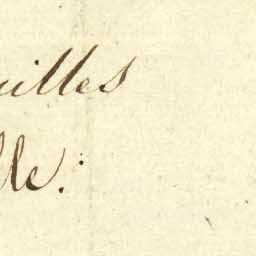 uilles
lle.